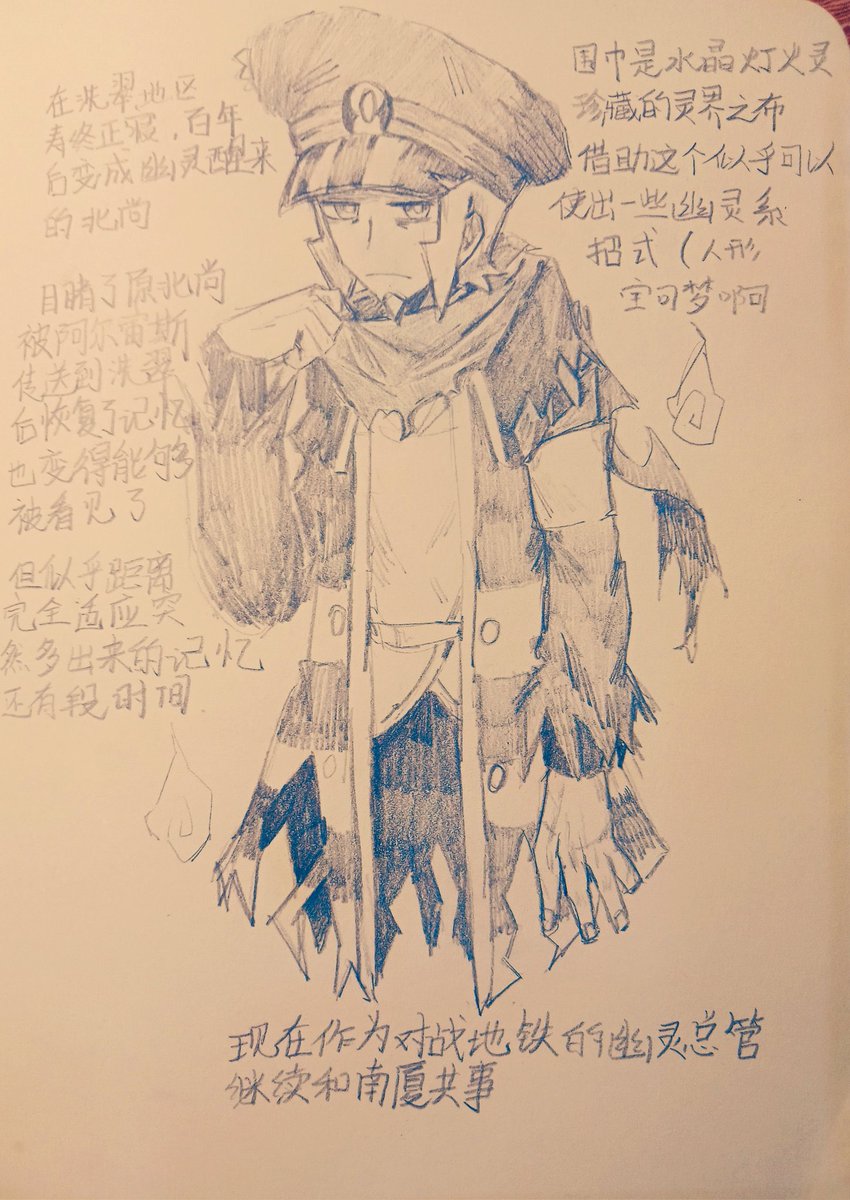 在洗翠地区
寿终正寝，百年
后变成幽灵醒来
的北尚
目睹了原北尚
被阿尔宙斯
传送到洗翠
后恢复了记忆
也变得能够
被看见了
但似乎距离
完全适应突
然多出来的记忆
还有段时间.
围巾是水晶灯火灵
珍藏的灵界之布
借助这个似乎可以
使出一些幽灵系
招式（人形
宝可梦啊
现在作为对战地铁的幽灵总管
继续和南厦共事